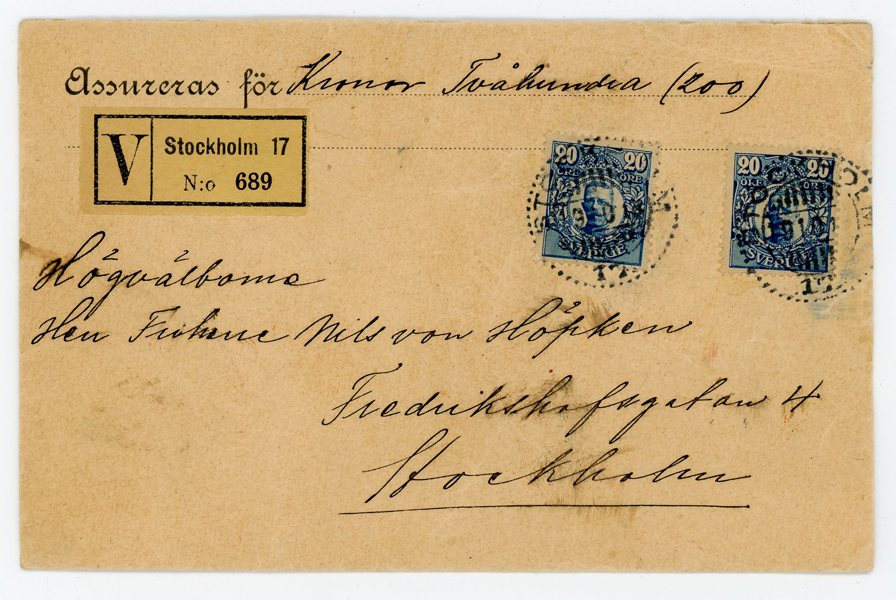 Assureras för Kronor Tvåhundra (200)
V Stockholm 17
N:o 689
20 20
ÖRE ÖRE
SVERIGE
STOCKHOLM
17
20 20
ÖRE ÖRE
SVERIGE
STOCKHOLM
17
Högvälborne
Herr Friherre Nils von Höpken
Fredrikshofsgatan 4
Stockholm